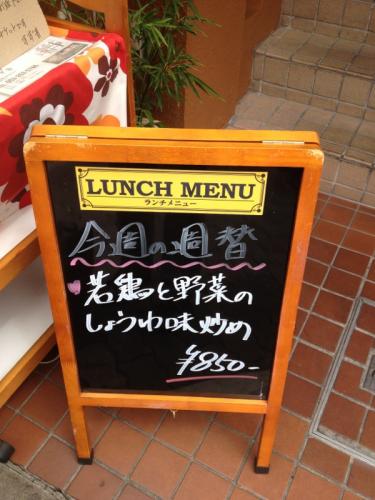 LUNCH MENU
ランチメニュー
今週の週替
若鶏と野菜の
しょうわ味炒め
¥850-